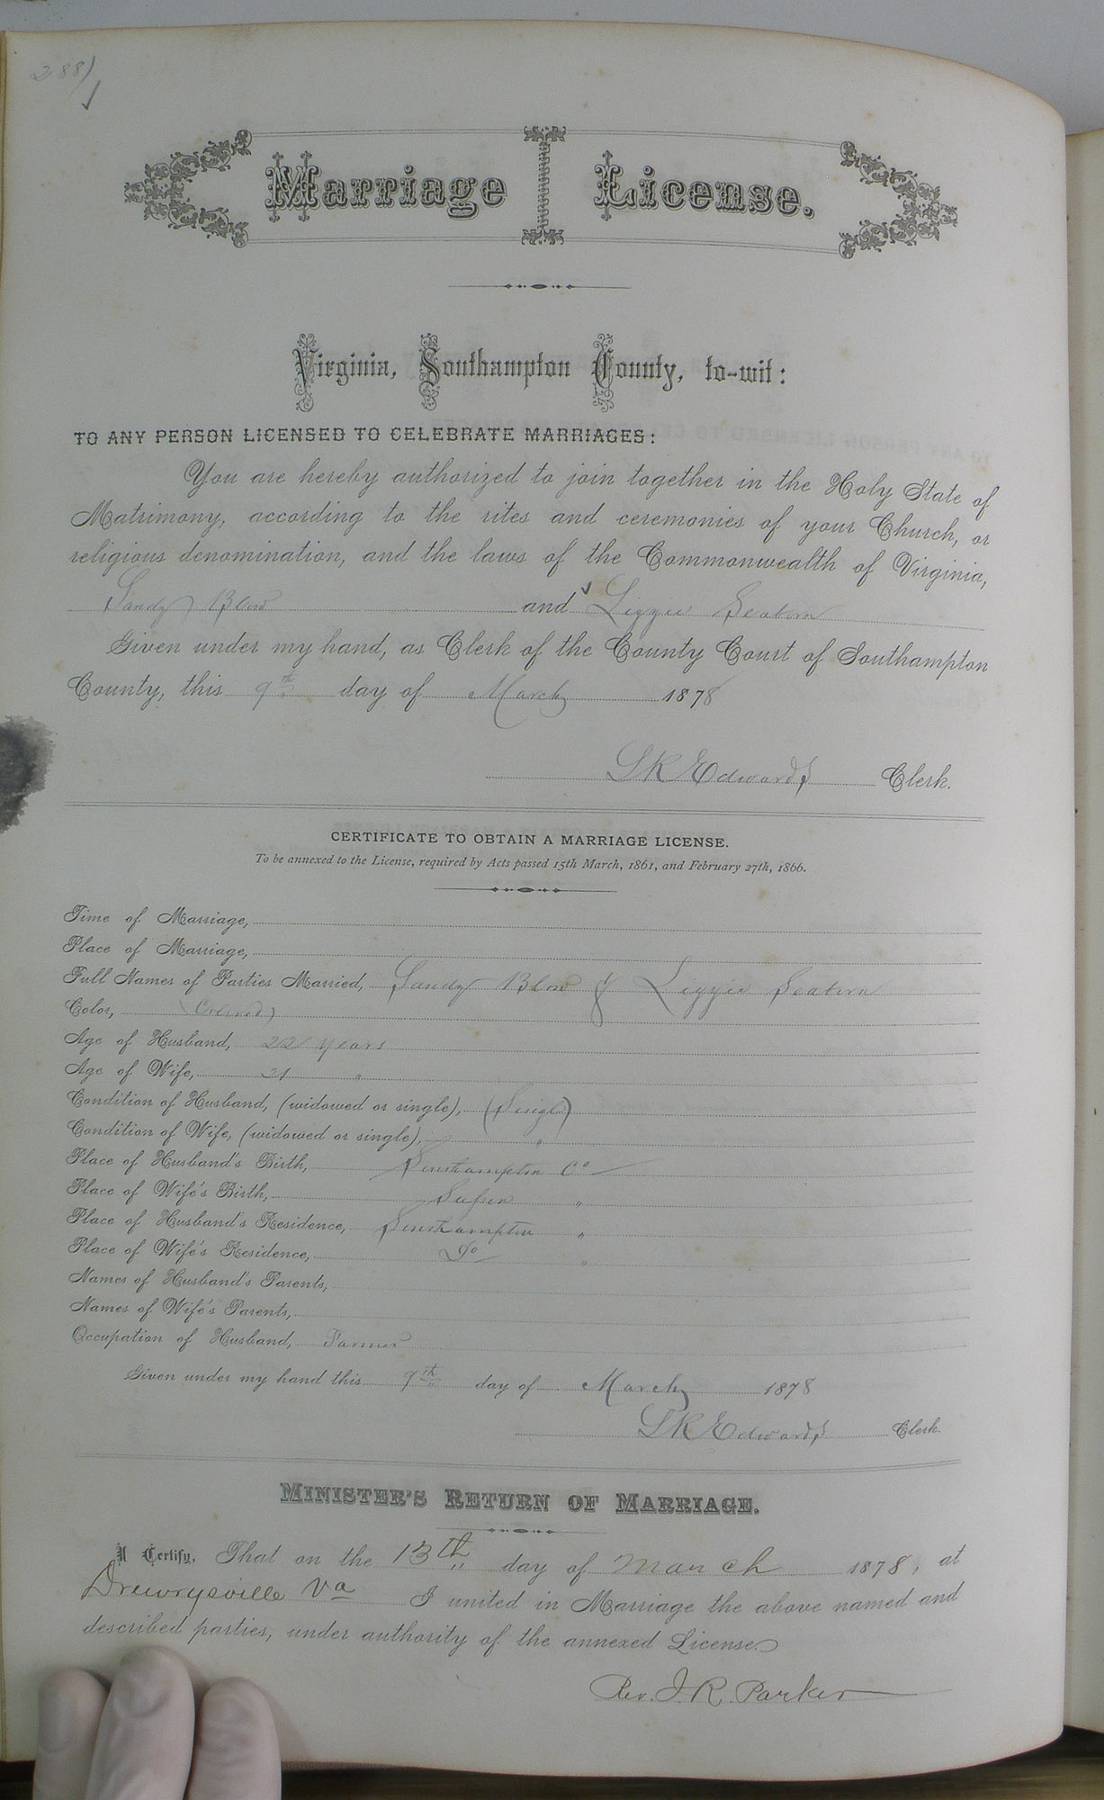 288
Marriage License.
Virginia, Southampton County, to-wit:
TO ANY PERSON LICENSED TO CELEBRATE MARRIAGES:
You are hereby authorized to join together in the Holy State of
Matrimony, according to the rites and ceremonies of your Church, or
religious denomination, and the laws of the Commonwealth of Virginia,
Sandy Blow and Lizzie
Given under my hand, as Clerk of the County Court of Southampton
County, this 9th day of March 1878
Edwards Clerk.
CERTIFICATE TO OBTAIN A MARRIAGE LICENSE.
To be annexed to the License, required by Acts passed 15th March, 1861, and February 27th, 1866.
Time of Marriage,
Place of Marriage,
Full Names of Parties Married, Sandy Blow & Lizzie
Color, (Colored)
Age of Husband, 22 years
Age of Wife, 21 "
Condition of Husband, (widowed or single), (Single)
Condition of Wife, (widowed or single), "
Place of Husband's Birth, Southampton Co
Place of Wife's Birth, "
Place of Husband's Residence, Southampton "
Place of Wife's Residence, Do "
Names of Husband's Parents,
Names of Wife's Parents,
Occupation of Husband, Farmer
Given under my hand this 9th day of March 1878
Edwards Clerk.
MINISTER'S RETURN OF MARRIAGE.
I Certify, That on the 13th day of March 1878, at
Drewrysville Va I united in Marriage the above named and
described parties, under authority of the annexed License.
Rev. J. R. Parker